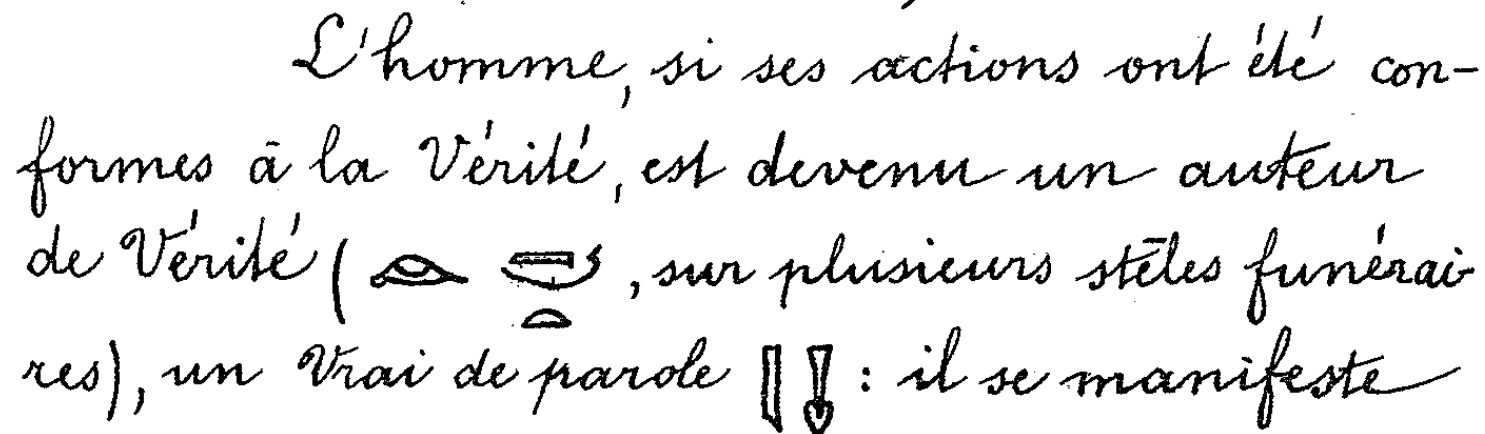 L'homme, si ses actions ont été con-
formes à la Vérité, est devenu un auteur
de Vérité ( 𓁹 𓌳𓏏, sur plusieurs stèles funérai-
res), un Vrai de parole 𓐙𓊤 : il se manifeste